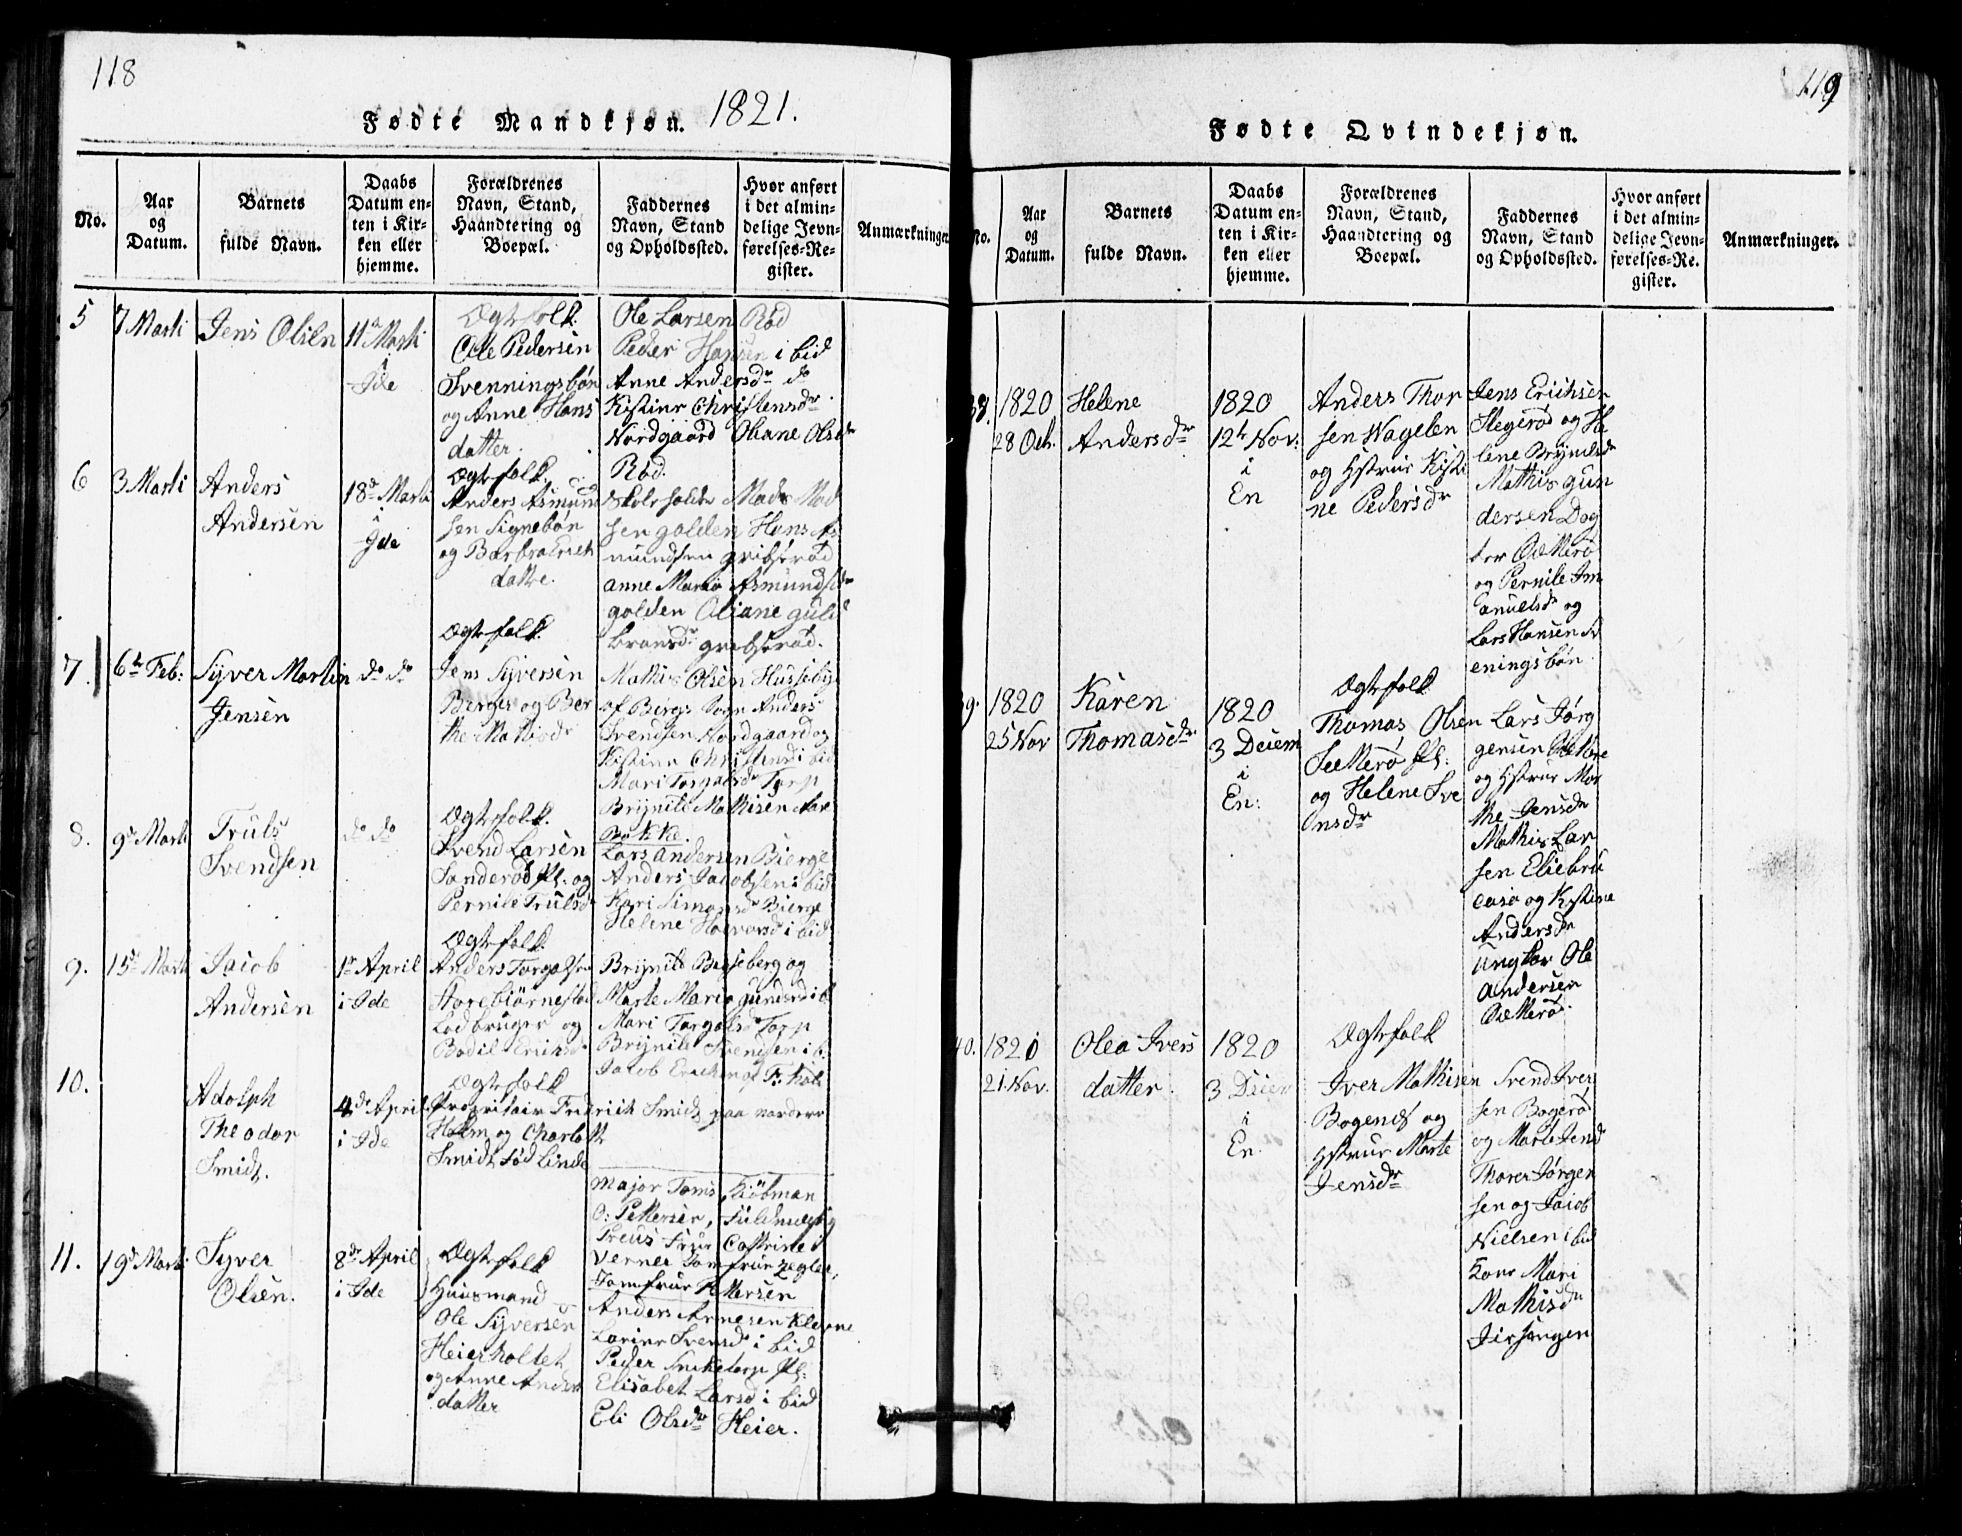 118
Fødte Mandkjøn. 1821.
No.
Aar
og
Datum.
Barnets
fulde Navn.
Daabs
Datum en=
ten i Kir=
ken eller
hjemme.
Forældrenes
Navn, Stand,
Haandtering og
Boepæl.
Faddernes
Navn, Stand
og Opholdssted.
Hvor anført
i det almin=
delige Jevn=
førelses=Re=
gister.
Anmærkninger.
5
7 Marti
Jens Olsen
11te Marti
i
Ide
Ægtefolk.
Ole Pedersen
Svenningsbøn
og Anne Hans
datter.
Ole Larsen Rød
Peder Hansen i bid
Anne Andersdr do
Kistine Christensdr
Nordgaard Oliane Olsdr
Rød.
6
3 Marti
Anders
Andersen
18de Marti
i
Ide
Ægtefolk.
Anders Asmund
sen Signebøn
og Barbra Erich
datte.
Skoleholder Mads Mad
sen golden Hans As
mundsen gribsrød
anne Maria Asmundsdr
golden Oliane gul
bransdr gribsrød.
7.
6te Feb:
Syver Martin
Jensen
do do
Ægtefolk.
Jens Syversen
Berger og Ber
the Mathisdr
Mathis Olsen Hussebye
af Bergs Sogn Anders
Svendsen Nordgaard og
Kistine Christensd i bid
Mari Torgalsdr Torp
Brynild Mathisen
Bakke.
8.
9de Marti
Truls
Svendsen
do do
Ægtefolk.
Svend Larsen
Sanderød Pl. og
Pernile Trulsdr
Lars Andersen Bierge
Anders Jacobsen i bid
Kari Simonsdr Bierge
Helene Halvorsd i bid
9.
15de Marti
Jacob
Andersen
1te April
i Ide
Ægtefolk.
Anders Torgalsen
Storebiørnestad
Lodbruger og
Bodil Ericksdr
Brynild Basseberg og
Marte Maria gundersd i b
Mari Torgalsdr Torp
Brynild Svendsen i b:
Jacob Ericksen
10.
Adolph
Theodor
Smidt.
4de April
i Ide
Ægtefolk
Proprietair Fredrich Smidt paa nordere
Holm og Charlotte
Smidt Fød Linde
Major Toms, Kiöbman
O: Pettersen, Fuldmægtig
Preus Frue Cathrine
Verner Jomfrue Zegler,
Jomfrue Pettersen
11.
19de Marti
Syver
Olsen.
8de April
i Ide
Ægtefolk
Huusmand
Ole Syversen
Heierholtet
og Anne Anders
datter
Anders Arnesen Klevne
Larine Svensdr i bid
Peder Snikelorp Pl:
Elisabet Larsd i bid
Eli Olsdr Heier.
119
Fødte Qvindekjøn.
No.
Aar
og
Datum.
Barnets
fulde Navn.
Daabs
Datum en=
ten i Kir=
ken eller
hjemme.
Forældrenes
Navn, Stand,
Haandtering og
Boepæl.
Faddernes
Navn, Stand
og Opholdssted.
Hvor anført
i det almin=
delige Jevn=
førelses=Re=
gister.
Anmærkninger.
38.
1820
28 Oct.
Helene
Andersdr
1820
12te Nov:
i
En
Anders Thor
sen Wagelen
og Hstrue Kisti
ne Pedersdr
Jens Erichsen
Hegerød og He
lene Brynelsdr
Mathis gun
dersen Dog
ter
og Pernile Im
anuelsdr og
Lars Hansen Sv
eningsbøn.
39.
1820
25 Nov
Karen
Thomasdr
1820
3 Decem
i
En:
Ægtefolk
Thomas Olsen
Sekkerø Pl.
og Helene Sve
nsdr
Lars Jørg
gensen
og Hstrue Mar
the Jensdr
Mathis Lar
sen
og Kistine
Andersdr
ungkar Ole
Andersen
40.
1820
21 Nov.
Olea Ivers
datter
1820
3 Decem
i
En.
Ægtefolk
Iver Mathisen
Bogenes og
Hstrue Marte
Jensdr
Svend Iver
sen Bogerød
og Marte Jensd
Thorer Jørgen
sen og Jacob
Nielsen i bid
Kone Mari
Mathisdr